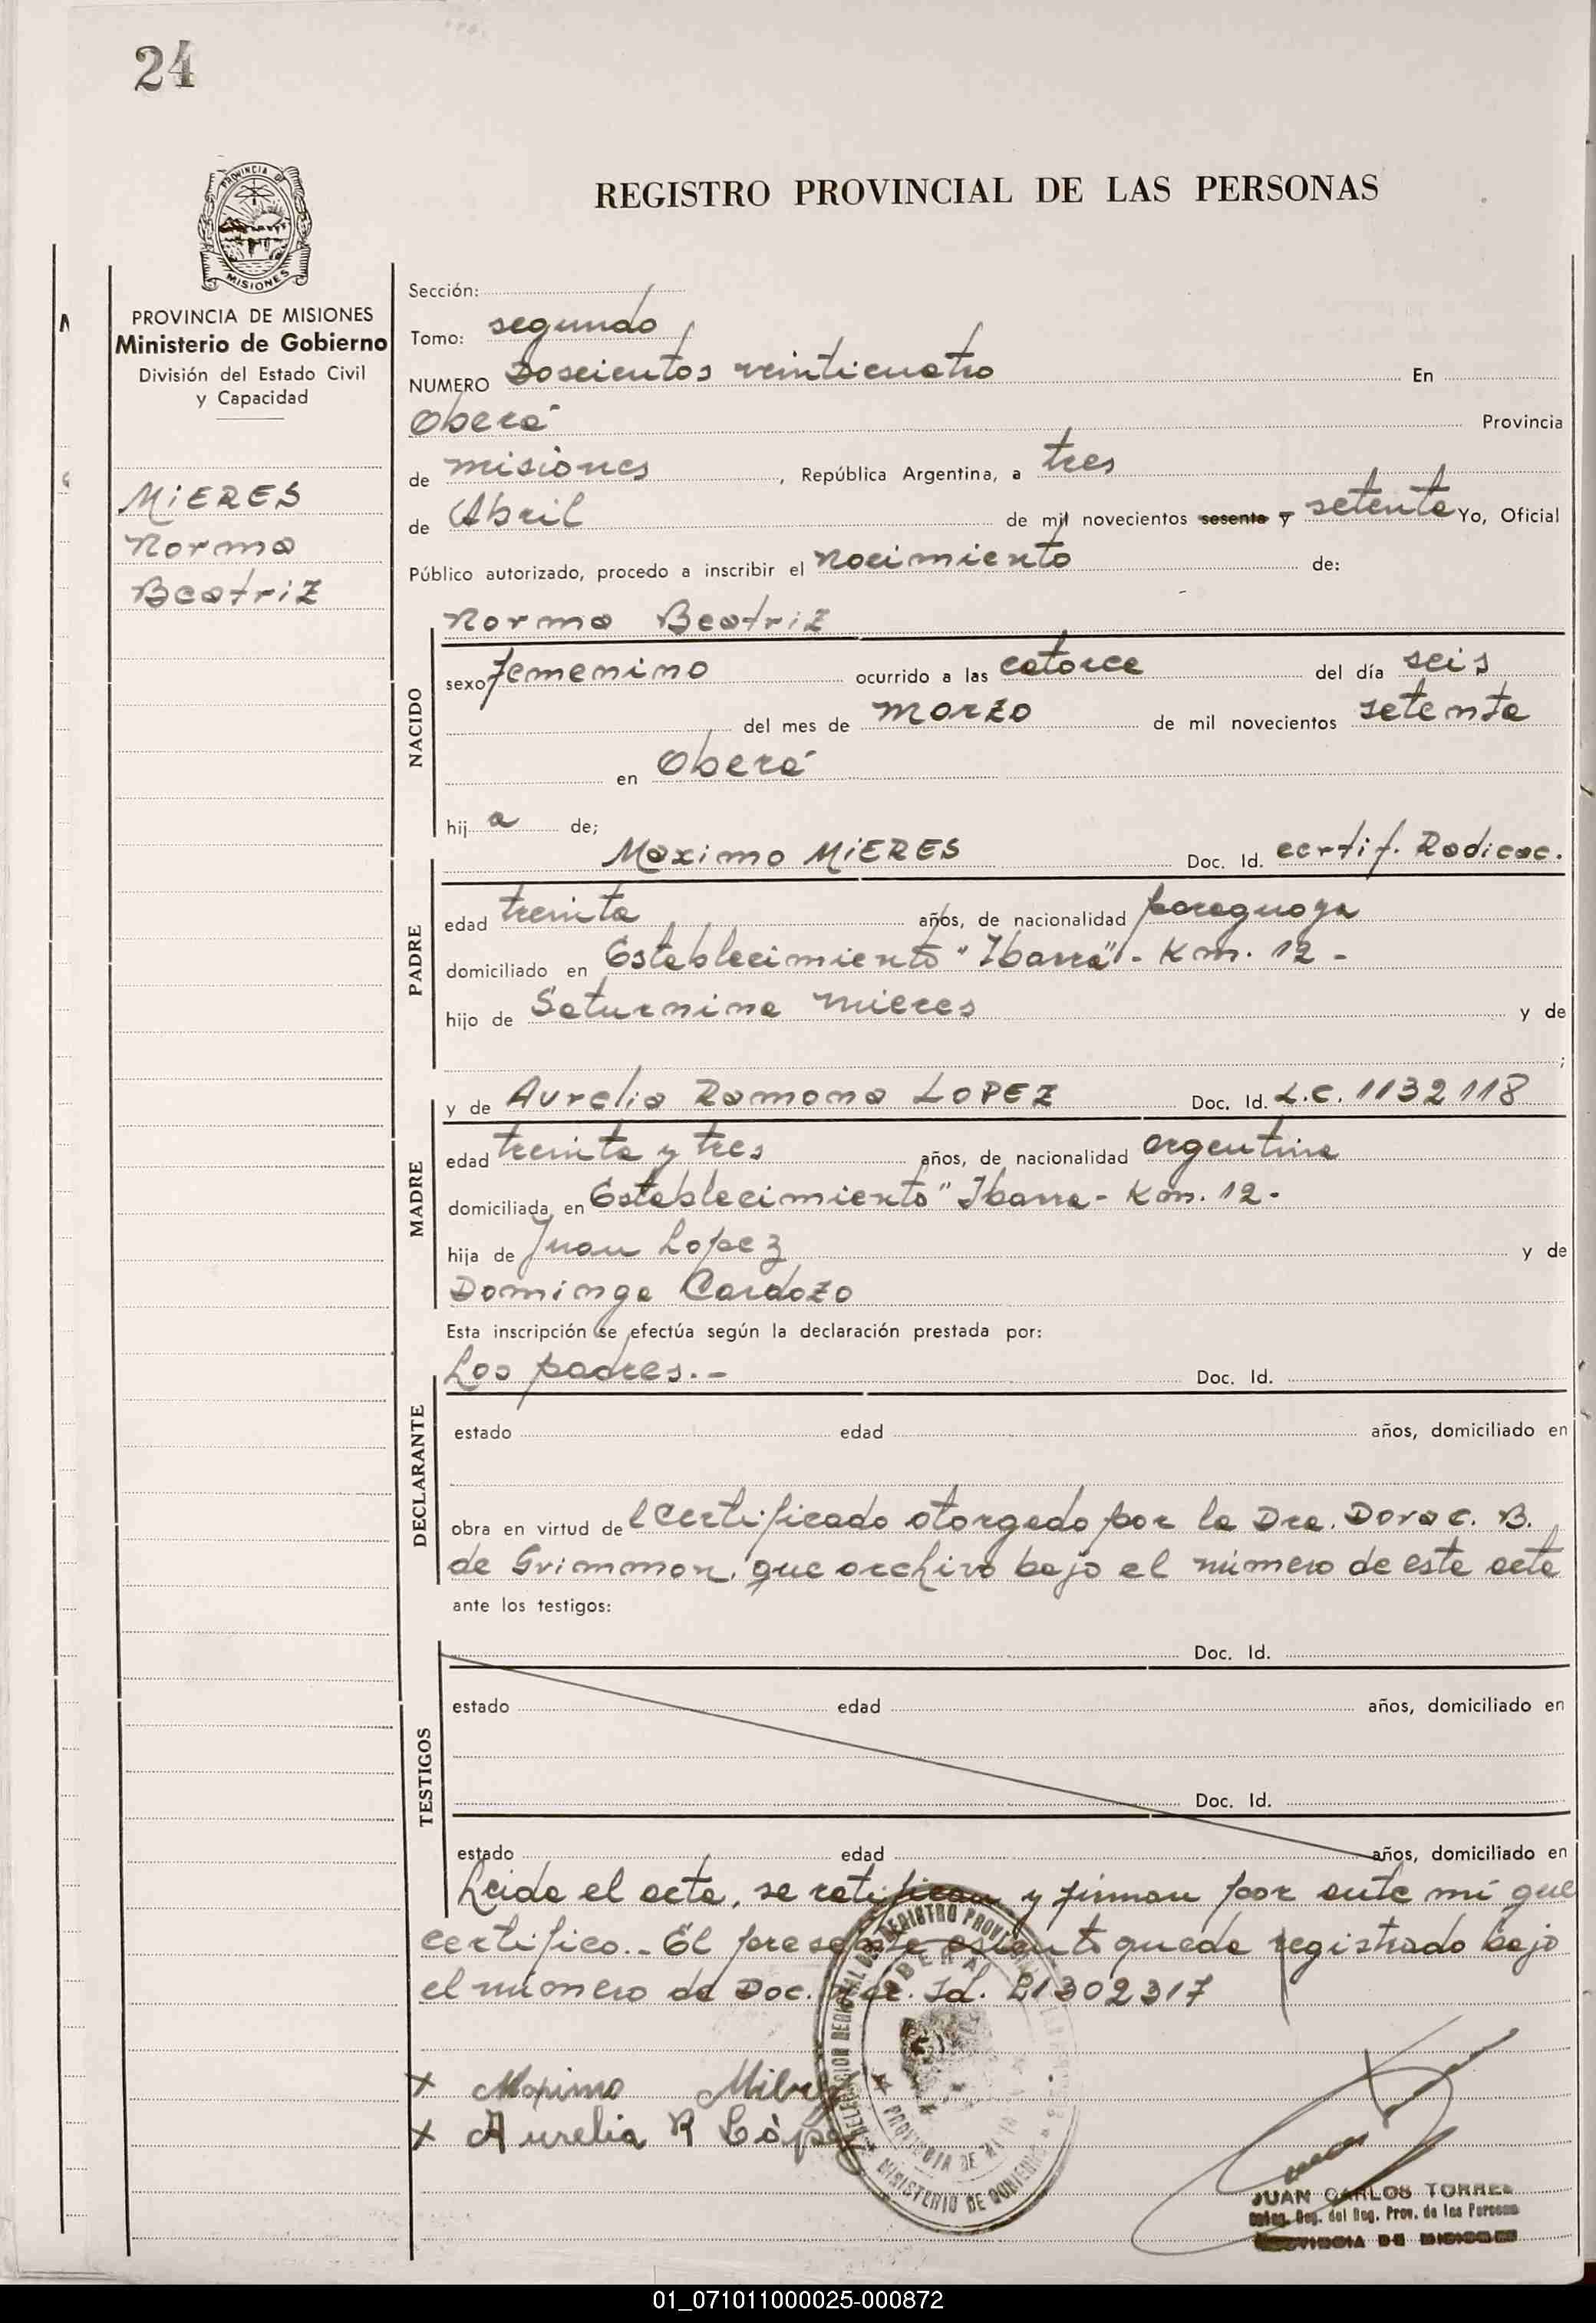 24
PROVINCIA DE
MISIONES
REGISTRO PROVINCIAL DE LAS PERSONAS
PROVINCIA DE MISIONES
Ministerio de Gobierno
División del Estado Civil
y Capacidad
MIERES
Norma
Beatriz
Sección:
Tomo: segundo
NUMERO Doscientos veinticuatro En
Oberá Provincia
de misiones, República Argentina, a tres
de Abril de mil novecientos sesenta y setenta Yo, Oficial
Público autorizado, procedo a inscribir el nacimiento de:
Norma Beatriz
NACIDO
sexo femenino ocurrido a las catorce del día seis
del mes de marzo de mil novecientos setenta
en Oberá
hij a de;
Maximo MIERES Doc. Id. certif. Radicac.
PADRE
edad treinta años, de nacionalidad paraguaya
domiciliado en Establecimiento "Ibarra" - Km. 12 -
hijo de Saturnina Mieres y de
;
y de Aurelia Ramona LOPEZ Doc. Id. L.C. 1132118
MADRE
edad treinta y tres años, de nacionalidad argentina
domiciliada en Establecimiento "Ibarra - Km. 12 -
hija de Juan Lopez y de
Dominga Cardozo
Esta inscripción se efectúa según la declaración prestada por:
Los padres.- Doc. Id.
DECLARANTE
estado edad años, domiciliado en
obra en virtud de l certificado otorgado por la Dra. Dora C. B.
de Grimmon, que archivo bajo el número de este acta
ante los testigos:
Doc. Id.
TESTIGOS
estado edad años, domiciliado en
Doc. Id.
estado edad años, domiciliado en
Leida el acta, se ratifican y firman por ante mi que
certifico.- El presente asiento queda registrado bajo
el número de Doc. Id. 21302317
x Maximo
x Aurelia R López
DELEGACION REGIONAL DEL REGISTRO PROVINCIAL
OBERA
PROVINCIA DE
MINISTERIO DE GOBIERNO
JUAN CARLOS TORRES
Deleg. Reg. del Reg. Prov. de las Personas
PROVINCIA DE MISIONES
01_071011000025-000872